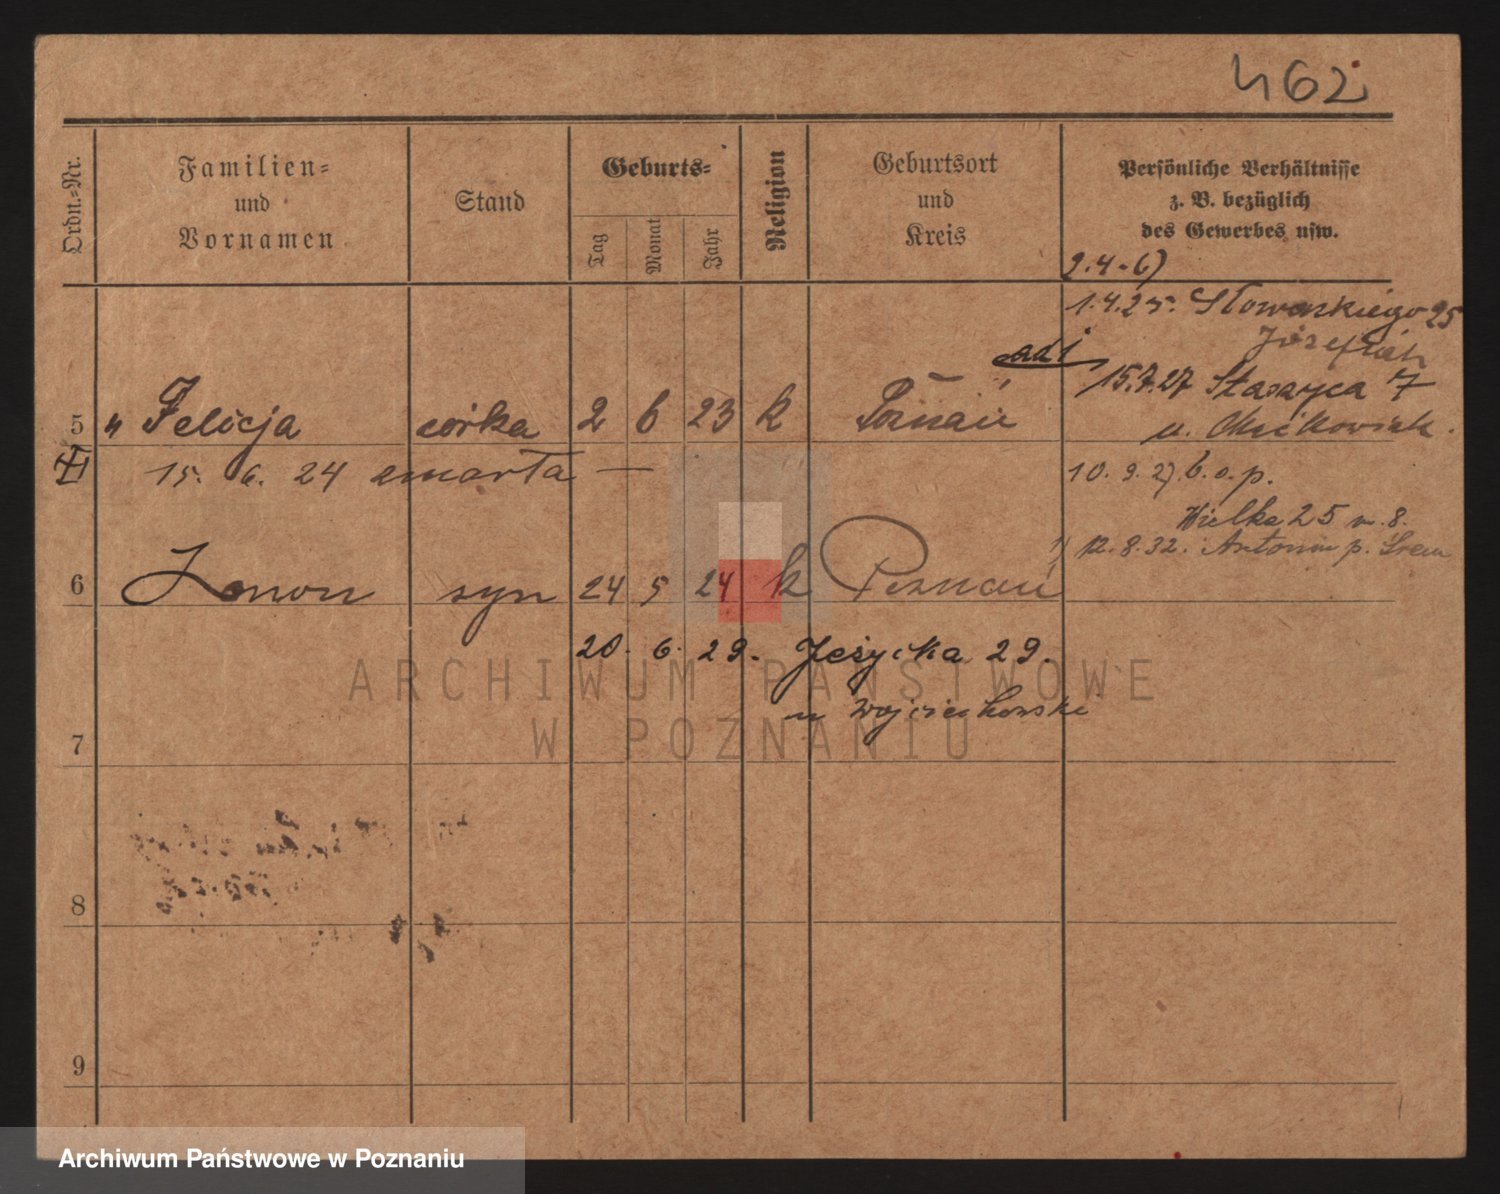 462
Ordn.-Nr.
Familien-
und
Vornamen
Stand
Geburts-
Tag
Monat
Jahr
Religion
Geburtsort
und
Kreis
Persönliche Verhältnisse
z. B. bezüglich
des Gewerbes usw.
1.4.25. Słowackiego 25
ad 1
15.7.27 Staszyca 7
5 " Felicja córka 2 6 23 k Poznań
u.
15. 6. 24 zmarła —
10. 9. 27 b. o. p.
Wielka 25 m. 8.
1) 12. 8. 32. Antonin p. Śrem
6 Zenon syn 24 5 24 k Poznań
20. 6. 29. Jeżycka 29.
u Wojciechowski
ARCHIWUM PAŃSTWOWE
W POZNANIU
7
8
9
Archiwum Państwowe w Poznaniu